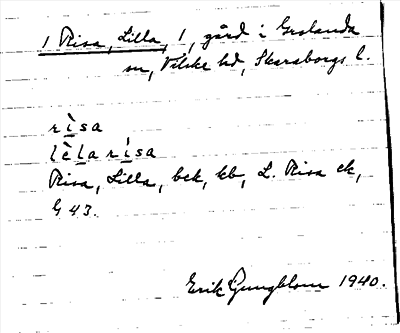 1 Risa, Lilla, 1, gård i Graslanda
sn, Vilske hd, Skaraborgs l.
rìsa
lèla rìsa
Risa, Lilla, bek, kb, L. Risa ek,
G 43.
Erik Ljungblom 1940.